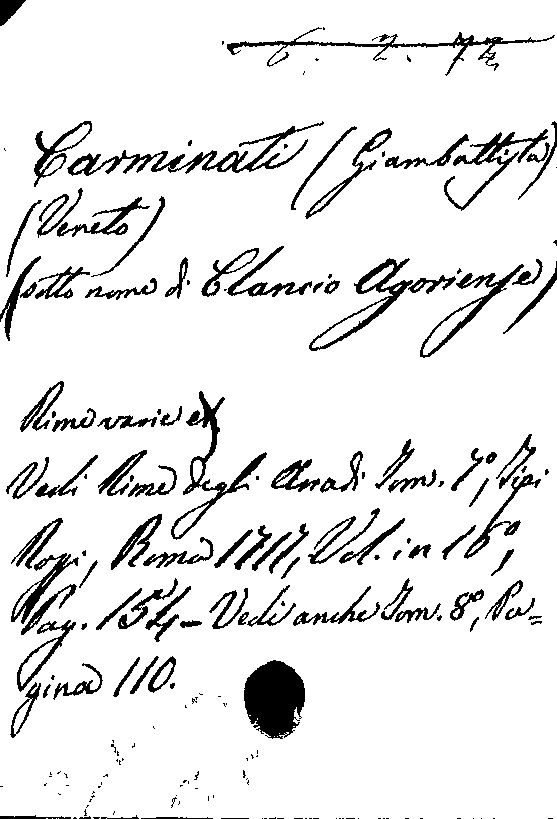 6. 7. 74
Carminati (Giambattista)
(Veneto)
(sotto nome di Clancio Agoriense)
Rime varie
Vedi Rime degli Arcadi Tom. 7º, Tipi
Rossi, Roma 1717, Vol. in 16º,
Pag. 154 - Vedi anche Tom. 8º, Pa=
gina 110.